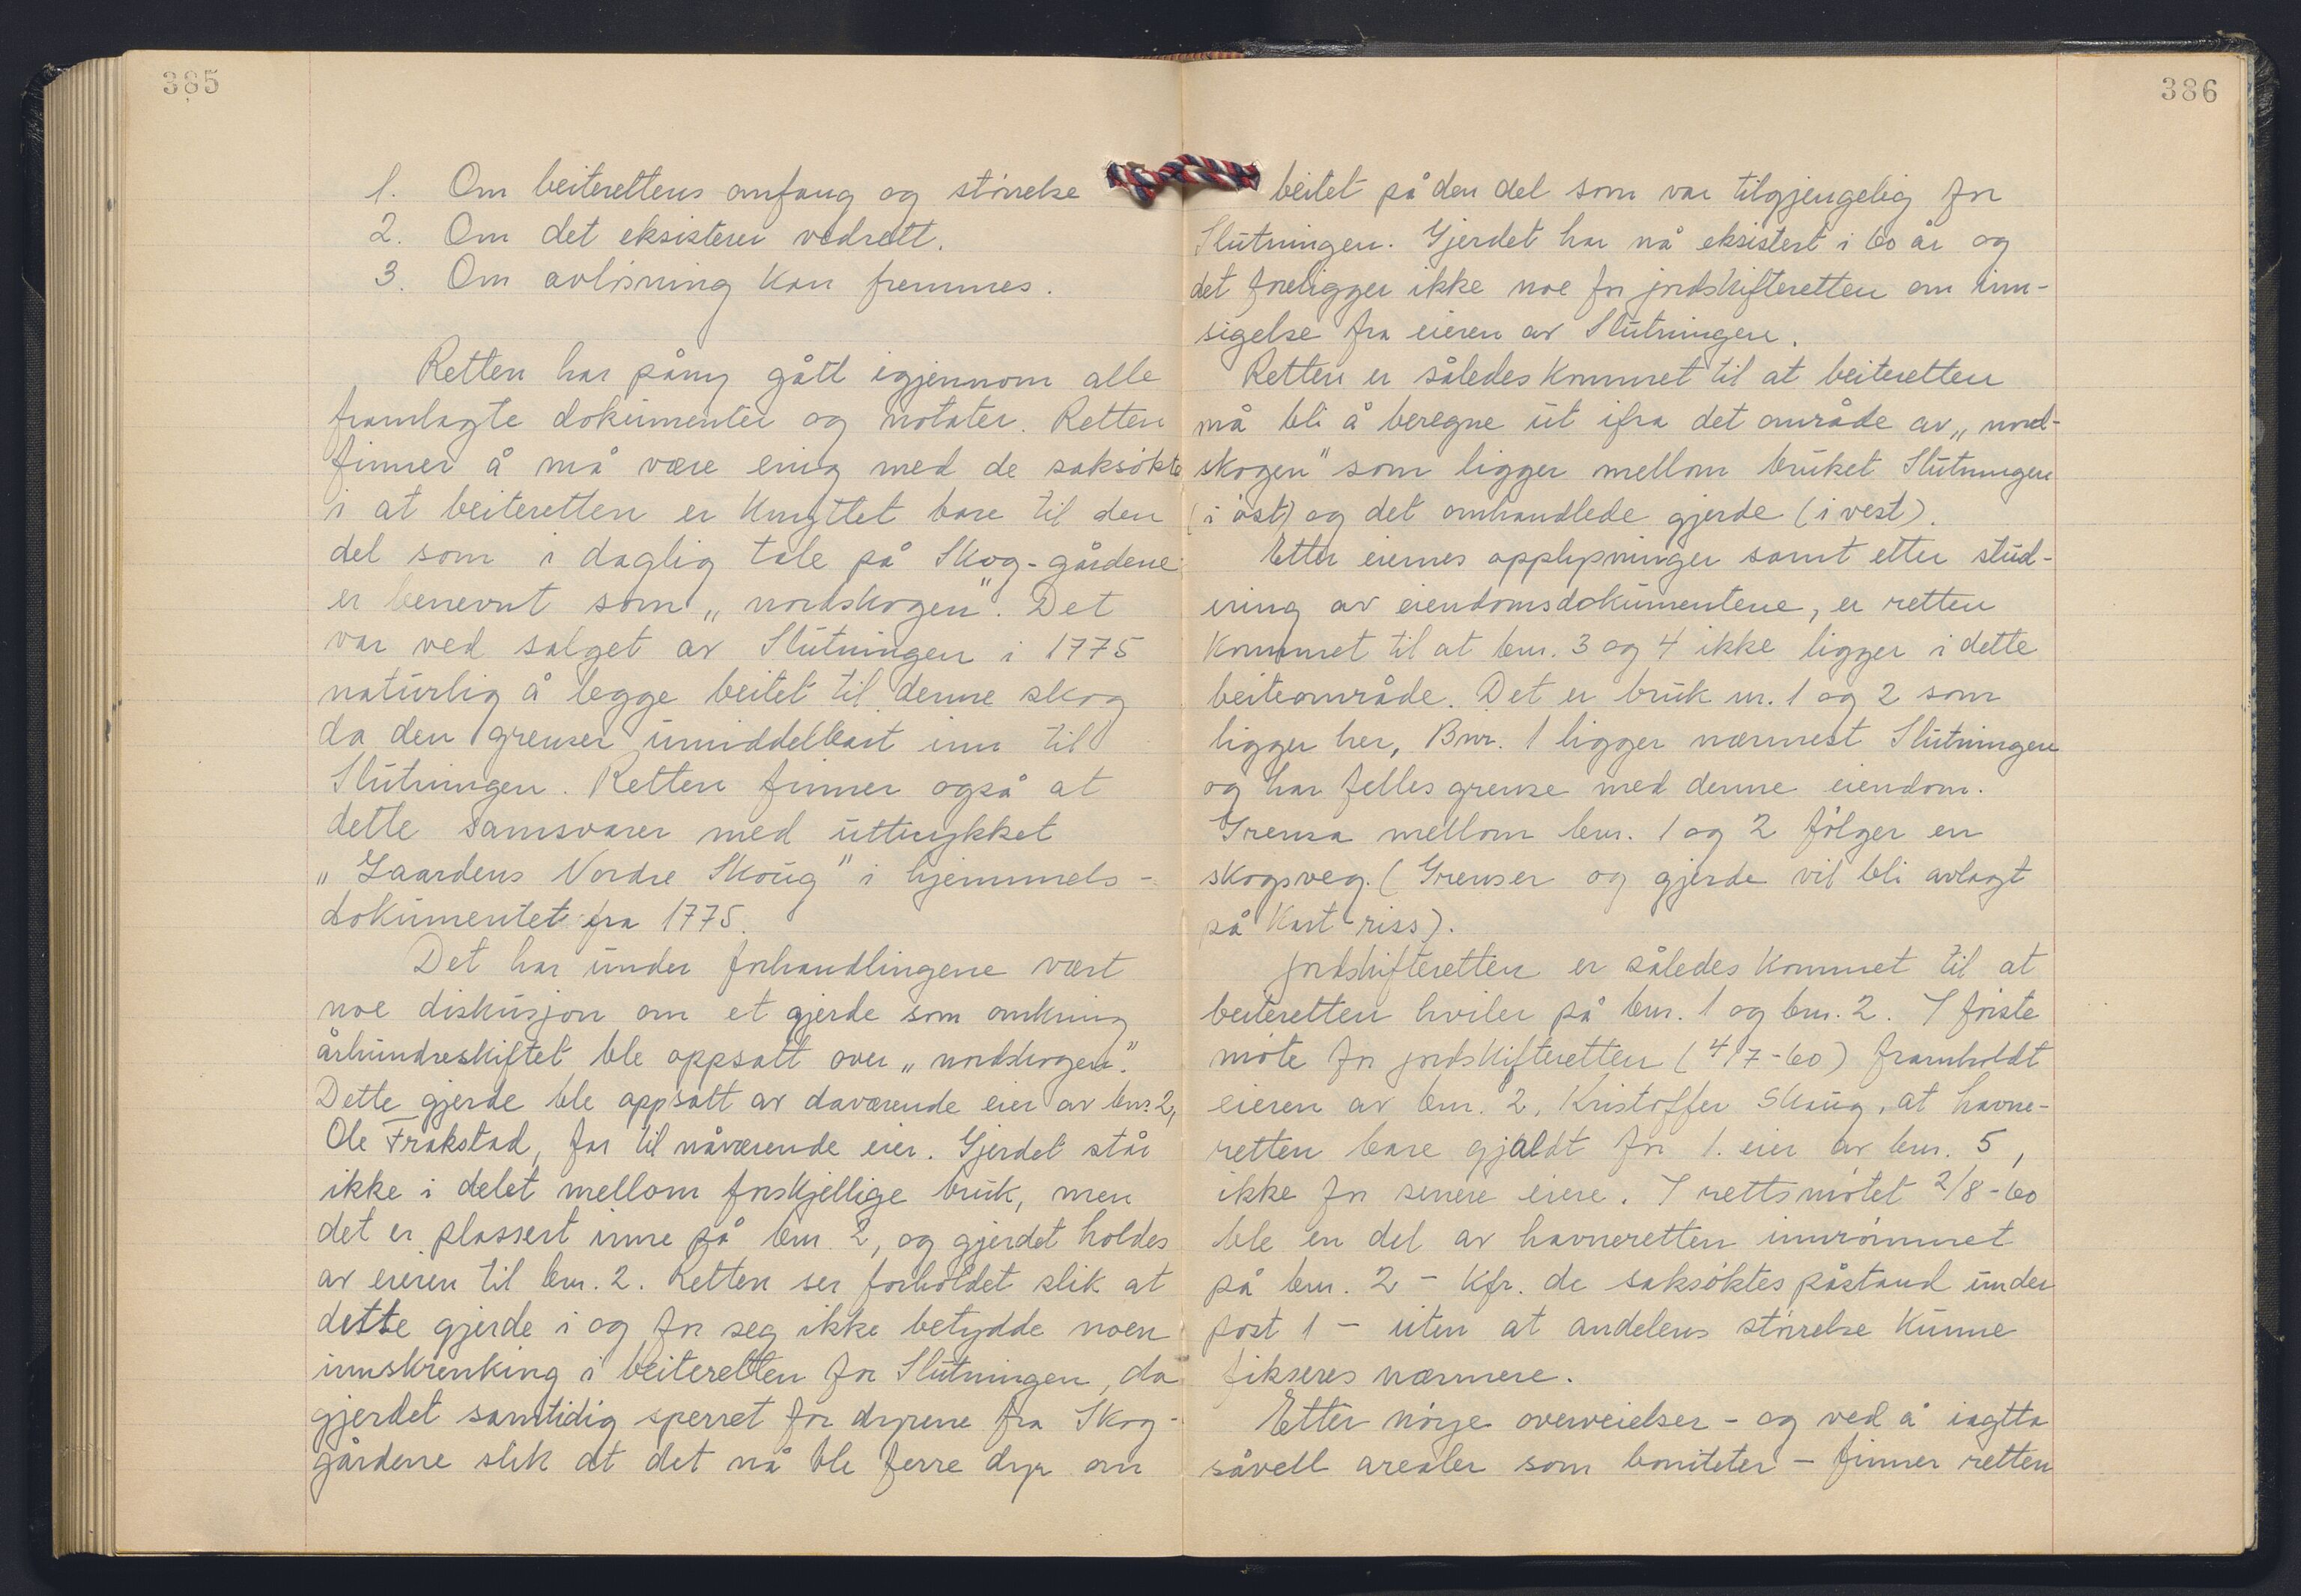 385
1. Om beiterettens omfang og størrelse
2. Om det eksisterer vedrett.
3. Om avløsning kan fremmes.
Retten har påny gått igjennom alle
framlagte dokumenter og notater. Retten
finner å må være enig med de saksøkte
i at beiteretten er knyttet bare til den
del som i daglig tale på Skog-gårdene
er benevnt som „nordskogen". Det
var ved salget av Slutningen i 1775
naturlig å legge beitet til denne skog
da den grenser umiddelbart inn til
Slutningen. Retten finner også at
dette samsvarer med uttrykket
„Gaardens Nordre Skoug" i hjemmels-
dokumentet fra 1775.
Det har under forhandlingene vært
noe diskusjon om et gjerde som omkring
århundreskiftet ble oppsatt over „nordskogen".
Dette gjerde ble oppsatt av daværende eier av bnr. 2,
Ole Frakstad, far til nåværende eier. Gjerdet står
ikke i delet mellom forskjellige bruk, men
det er plassert inne på bnr. 2, og gjerdet holdes
av eieren til bnr. 2. Retten ser forholdet slik at
dette gjerde i og for seg ikke betydde noen
innskrenking i beiteretten for Slutningen, da
gjerdet samtidig sperret for dyrene fra Skog-
gårdene slik at det nå ble færre dyr om
386
beitet på den del som var tilgjengelig for
Slutningen. Gjerdet har nå eksistert i 60 år og
det foreligger ikke noe for jordskifteretten om inn-
sigelse fra eieren av Slutningen.
Retten er således kommet til at beiteretten
må bli å beregne ut ifra det område av „nord-
skogen" som ligger mellom bruket Slutningen
(i øst) og det omhandlede gjerde (i vest).
Etter eiernes opplysninger samt etter stud-
ering av eiendomsdokumentene, er retten
kommet til at bnr. 3 og 4 ikke ligger i dette
beiteområde. Det er bruk nr. 1 og 2 som
ligger her, Bnr. 1 ligger nærmest Slutningen
og har felles grense med denne eiendom.
Grensa mellom bnr. 1 og 2 følger en
skogsveg. (Grenser og gjerde vil bli avlagt
på kart-riss).
Jordskifteretten er således kommet til at
beiteretten hviler på bnr. 1 og bnr. 2. I første
møte for jordskifteretten (4/7-60) framholdt
eieren av bnr. 2, Kristoffer Skaug, at havne-
retten bare gjaldt for 1. eier av bnr. 5,
ikke for senere eiere. I rettsmøtet 2/8-60
ble en del av havneretten innrømmet
på bnr. 2 - kfr. de saksøktes påstand under
post 1 - uten at andelens størrelse kunne
fikseres nærmere.
Etter nøye overveielser - og ved å iagtta
såvell arealer som boniteter - finner retten